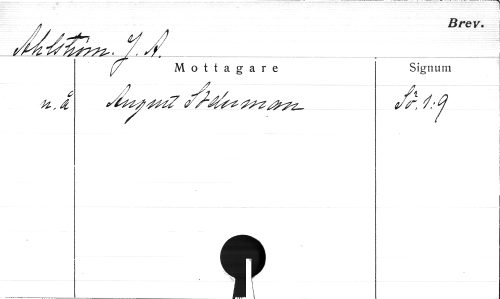 Brev.
Ahlström. J. A.
Mottagare Signum
u.å August Söderman Sö. 1:9